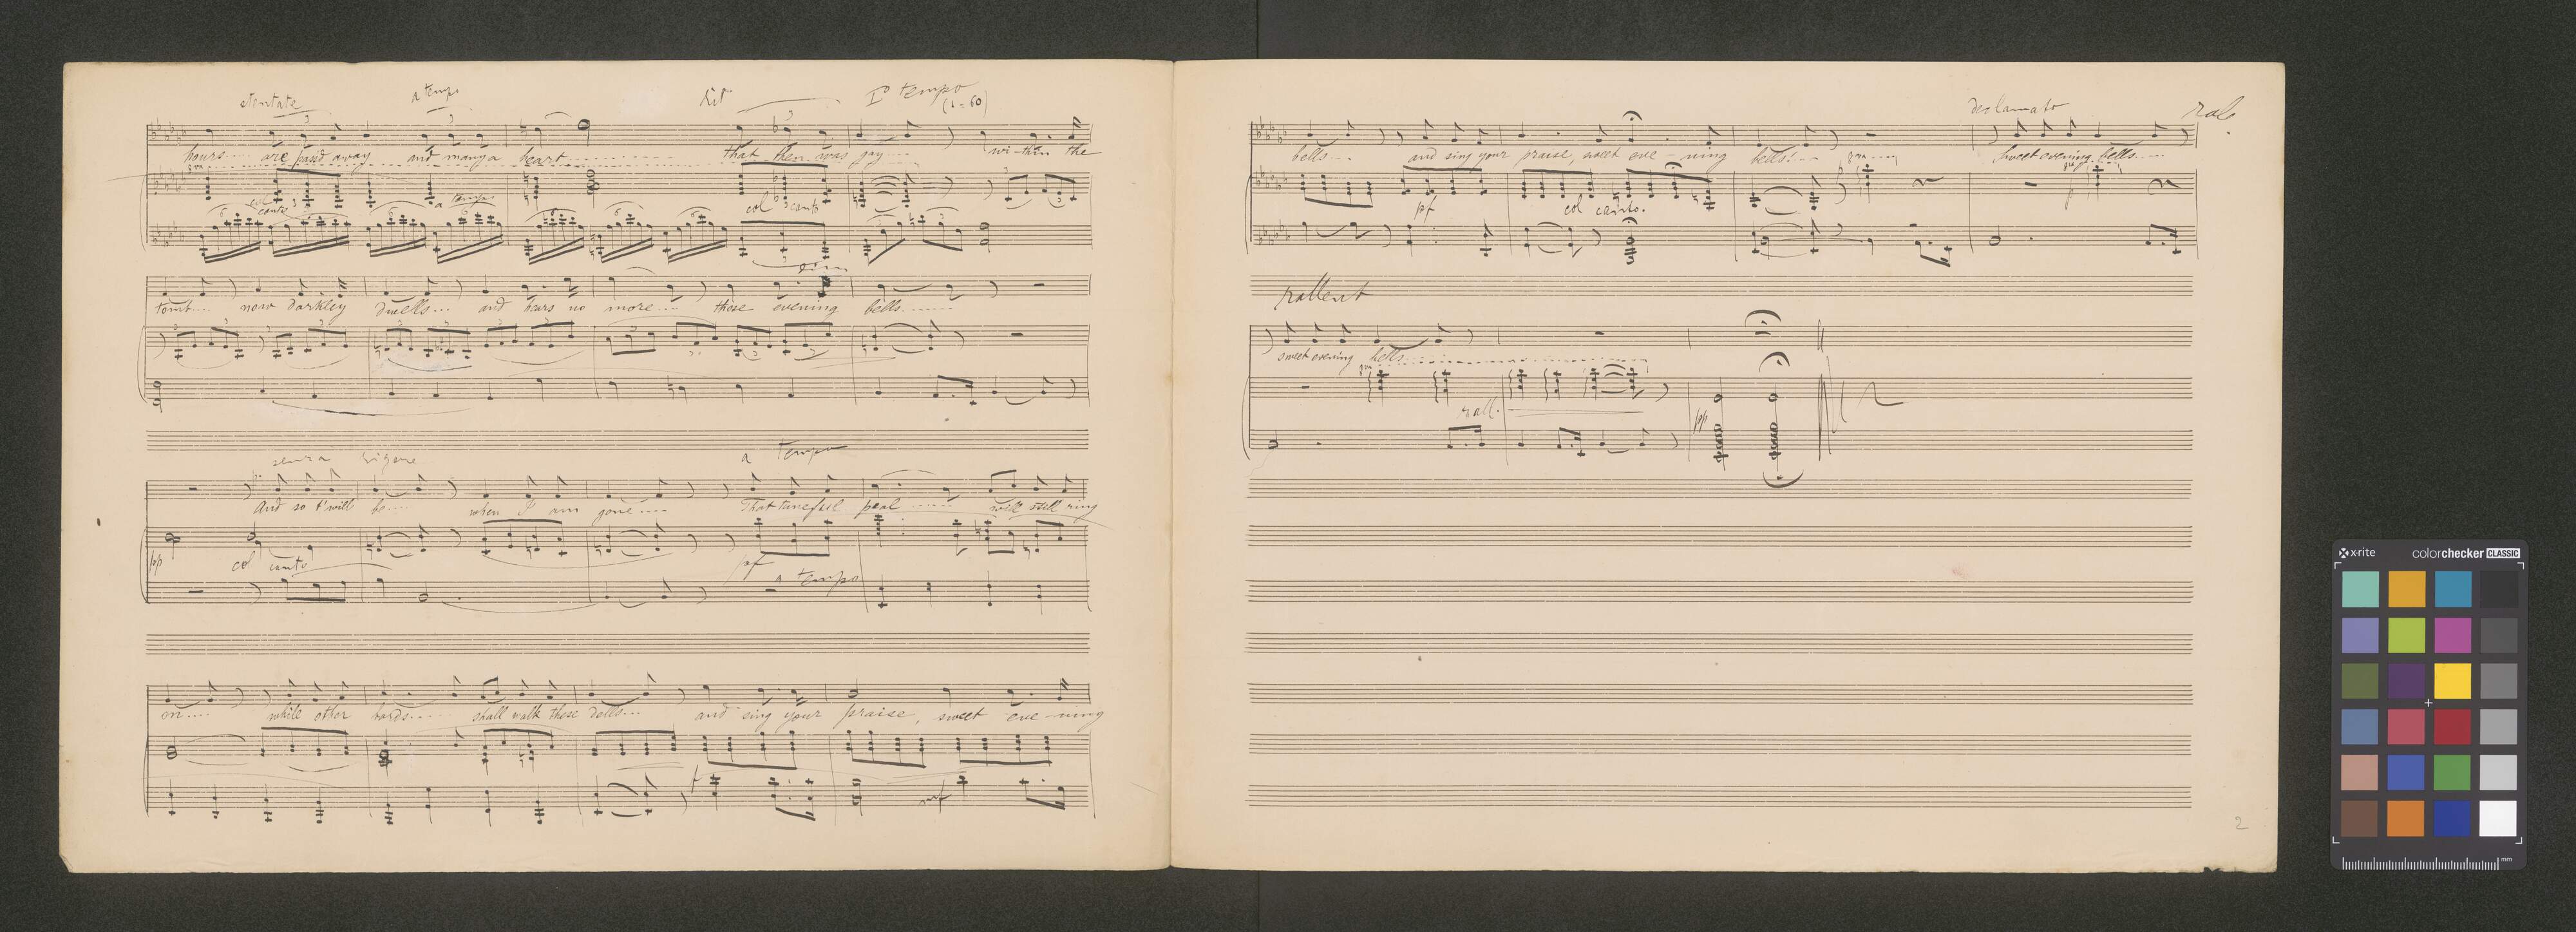 stentate a tempo Rit Iº tempo
(♩=60)
hours.... are pass'd away and many a heart............ that then was gay.... wi-thin the
8va
col canto a tempo col canto
dim
tomb.... now darkley dwells... and hears no more.... those evening bells.......
senza rigore a tempo
And so t'will be.... when I am gone.... That tuneful peal...... will still ring
pp col canto pf a tempo
on.... while other bards.... shall walk these dells... and sing your praise, sweet eve-ning
f mf
declamato rall
bells... and sing your praise, sweet eve-ning bells!... Sweet evening bells....
8va 8va
pf col canto. p
rallent
sweet evening bells
8va
rall. pp
2
x-rite colorchecker CLASSIC
mm